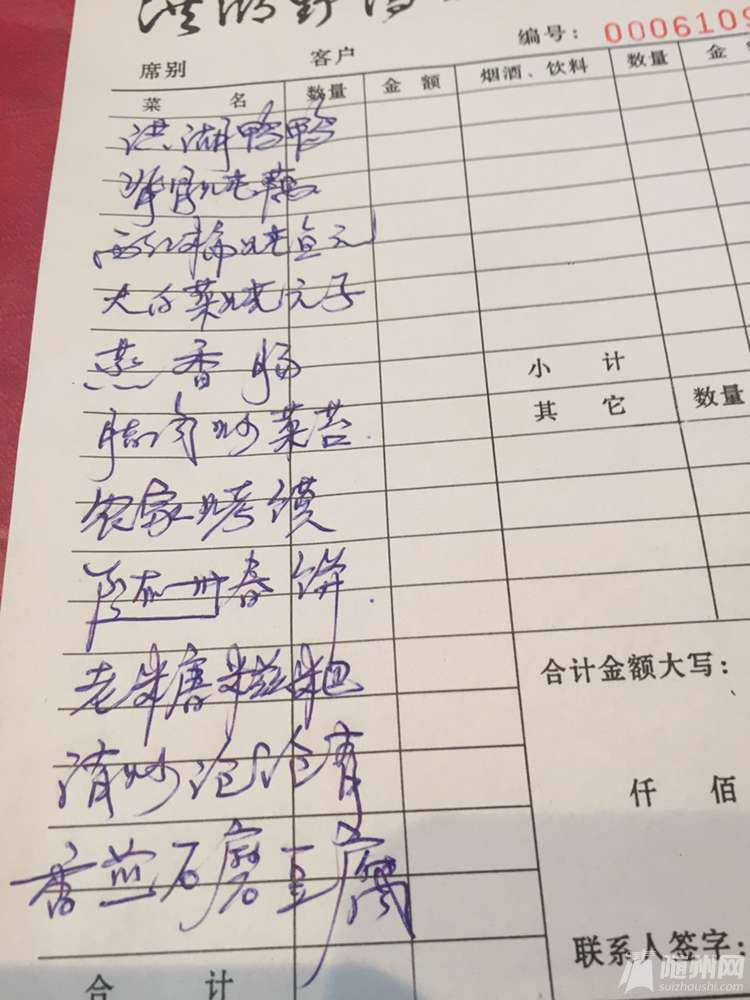 洪湖野鸭
编号： 0006109
席别 客户
菜 名 数量 金 额 烟酒、饮料 数量 金
洪湖野鸭
烧藕
烧鱼元
大白菜烧元子
小 计
蒸香肠
其 它 数量
腊肉炒菜苔
农家烤馍
随州春饼
老米唐糍粑
合计金额大写：
清炒泡泡青
仟 佰
香煎石磨豆腐
联系人签字：
合 计
随州网
suizhoushi.com